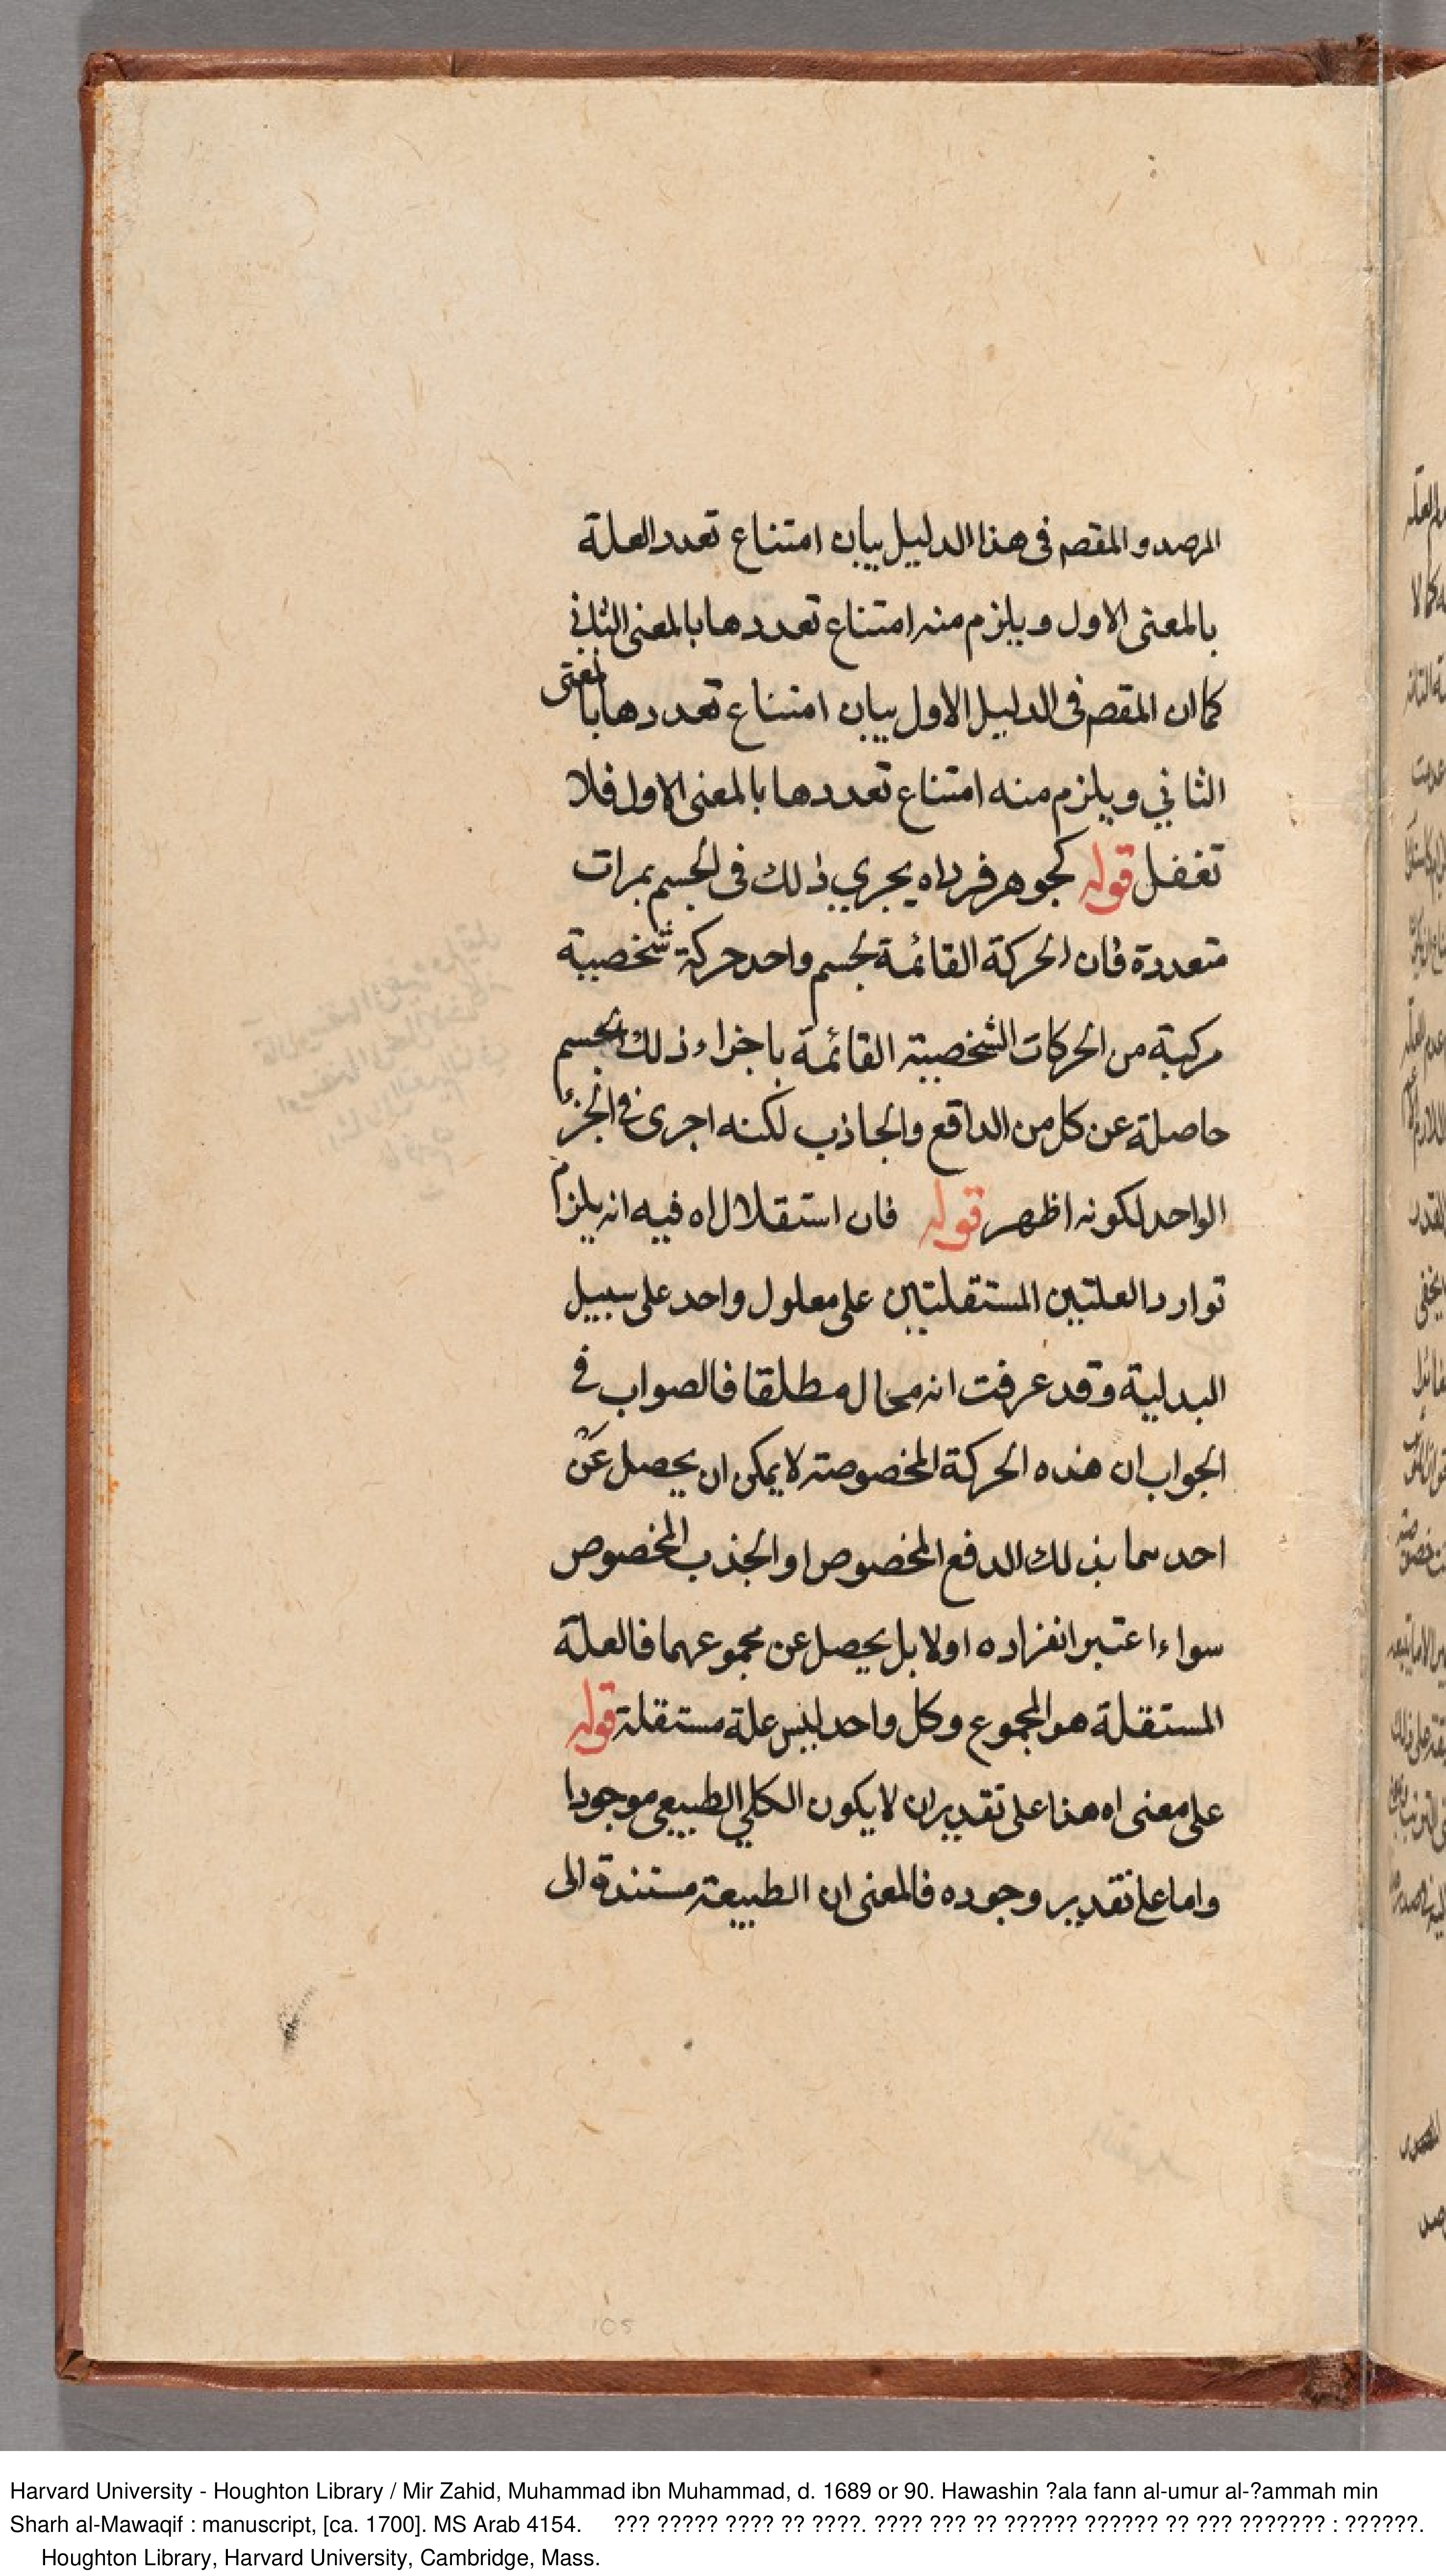 المرصد والمقصم فى هذا الدليل بيان امتناع تعدد العلة
بالمعنى الاول ويلزم منه امتناع تعددها بالمعنى الثانى
كما ان المقصم فى الدليل الاول بيان امتناع تعددها بالمعنى
الثاني ويلزم منه امتناع تعددها بالمعنى الاول فلا
تغفل قوله كجوهر فرد اه يجري ذلك فى الجسم بمرات
متعددة فان الحركة القائمة بجسم واحد حركة شخصية
مركبة من الحركات الشخصية القائمة باجزاء ذلك الجسم
حاصلة عن كل من الدافع والجاذب لكنه اجرى فى الجزء
الواحد لكونه اظهر قوله فان استقلال اه فيه انه يلزم
توارد العلتين المستقلتين على معلول واحد على سبيل
البدلية وقد عرفت انه محال مطلقا فالصواب فى
الجواب ان هذه الحركة المخصوصة لا يمكن ان يحصل عن
احدهما بذلك الدفع المخصوص او الجذب المخصوص
سواء اعتبر انفراده اولا بل يحصل عن مجموعهما فالعلة
المستقلة هو المجموع وكل واحد ليس علة مستقلة قوله
على معنى اه هذا على تقدير ان لا يكون الكلي الطبيعى موجودا
واما على تقدير وجوده فالمعنى ان الطبيعة مستندة الى
105
Harvard University - Houghton Library / Mir Zahid, Muhammad ibn Muhammad, d. 1689 or 90. Hawashin ?ala fann al-umur al-?ammah min
Sharh al-Mawaqif : manuscript, [ca. 1700]. MS Arab 4154. ??? ????? ???? ?? ????. ???? ??? ?? ?????? ?????? ?? ??? ??????? : ??????.
Houghton Library, Harvard University, Cambridge, Mass.